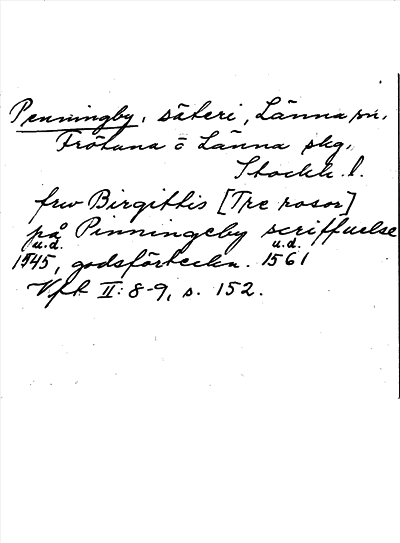 Penningby, säteri, Länna sn,
Frötuna o Länna skg,
Stockh. l.
frw Birgittis [Tre rosor]
på Pinningeby scriffuelse
u.d. u.d.
1545, godsförteckn. 1561
Vft II: 8-9, s. 152.